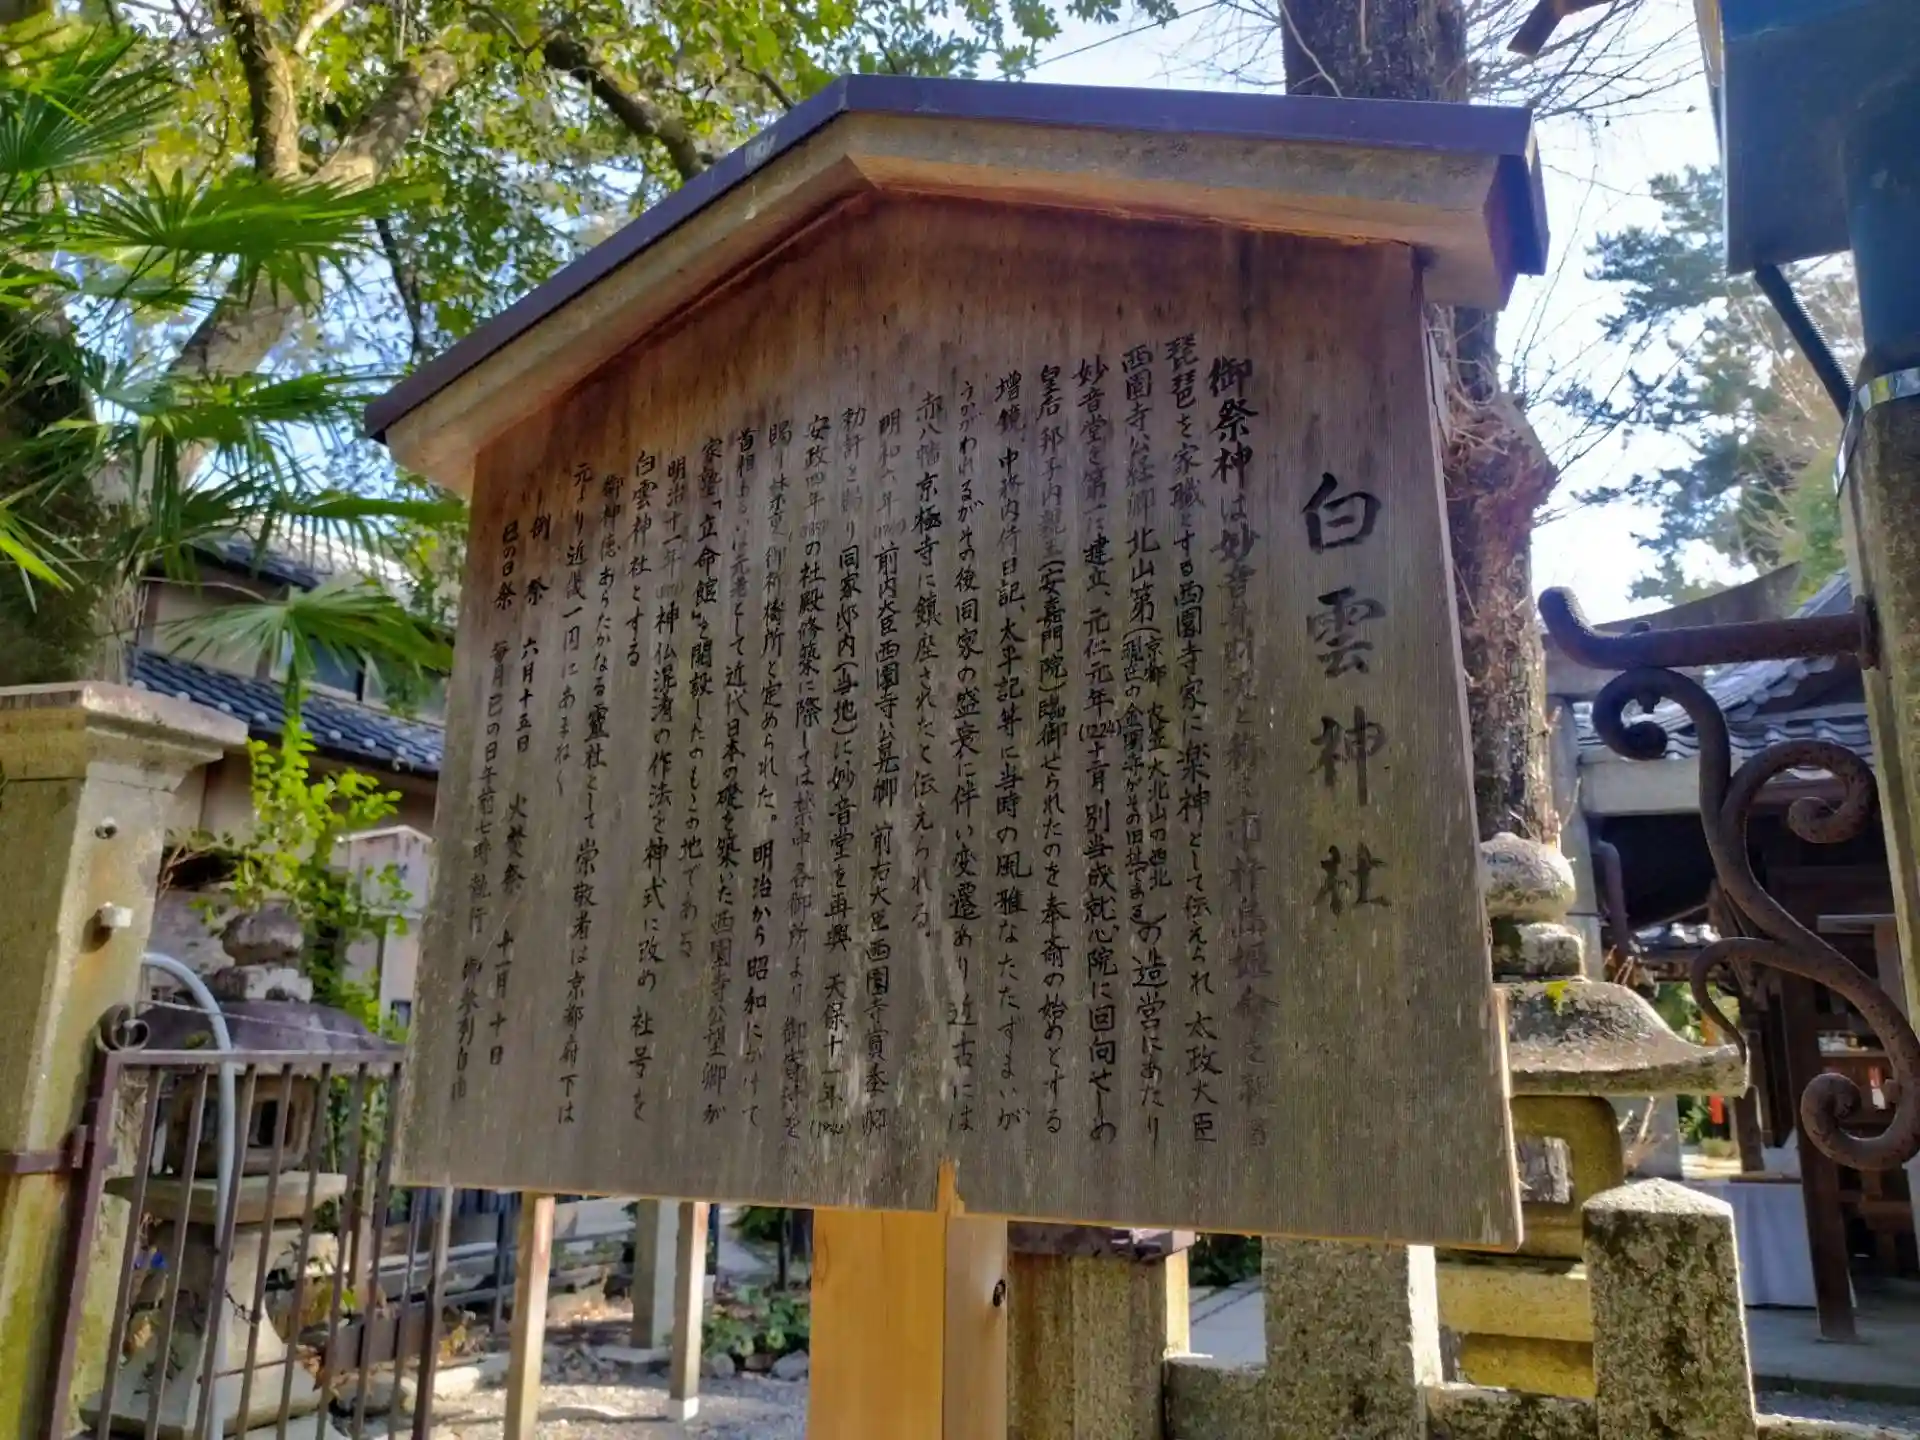 白雲神社
御祭神は妙音弁財天と称え市杵島姫命を祀る
琵琶を家職とする西園寺家に楽神として伝えられ 太政大臣
西園寺公経卿 北山第(京都 衣笠 大北山の池北 現在の金閣寺がその旧址である)の造営にあたり
妙音堂を第一に建立、元仁元年(1224)十二月 別当成就心院に回向せしめ
皇后 邦子内親王(安嘉門院)臨御せられたのを奉斎の始めとする
増鏡、中務内侍日記、太平記等に当時の風雅なたたずまいが
うかがわれるがその後同家の盛衰に伴い変遷あり 近古には
赤八幡京極寺に鎮座されたと伝えられる。
明和六年(1769)前内大臣西園寺公晃卿 前右大臣西園寺賞季卿
勅許を賜り 同家邸内(当地)に妙音堂を再興 天保十一年(1840)
安政四年(1857)の社殿修築に際しては禁中各御所より 御寄附を
賜り 禁裏御祈祷所と定められた。明治から昭和にかけて
首相あるいは元老として近代日本の礎を築いた西園寺公望卿が
家塾「立命館」を開設したのもこの地である
明治十一年(1878)神仏混淆の作法を神式に改め 社号を
白雲神社とする
御神徳あらたかなる霊社として崇敬者は京都府下は
元より近畿一円にあまねく
例祭 六月十五日 火焚祭 十一月十日
巳の日祭 毎月巳の日午前七時執行 御参列自由